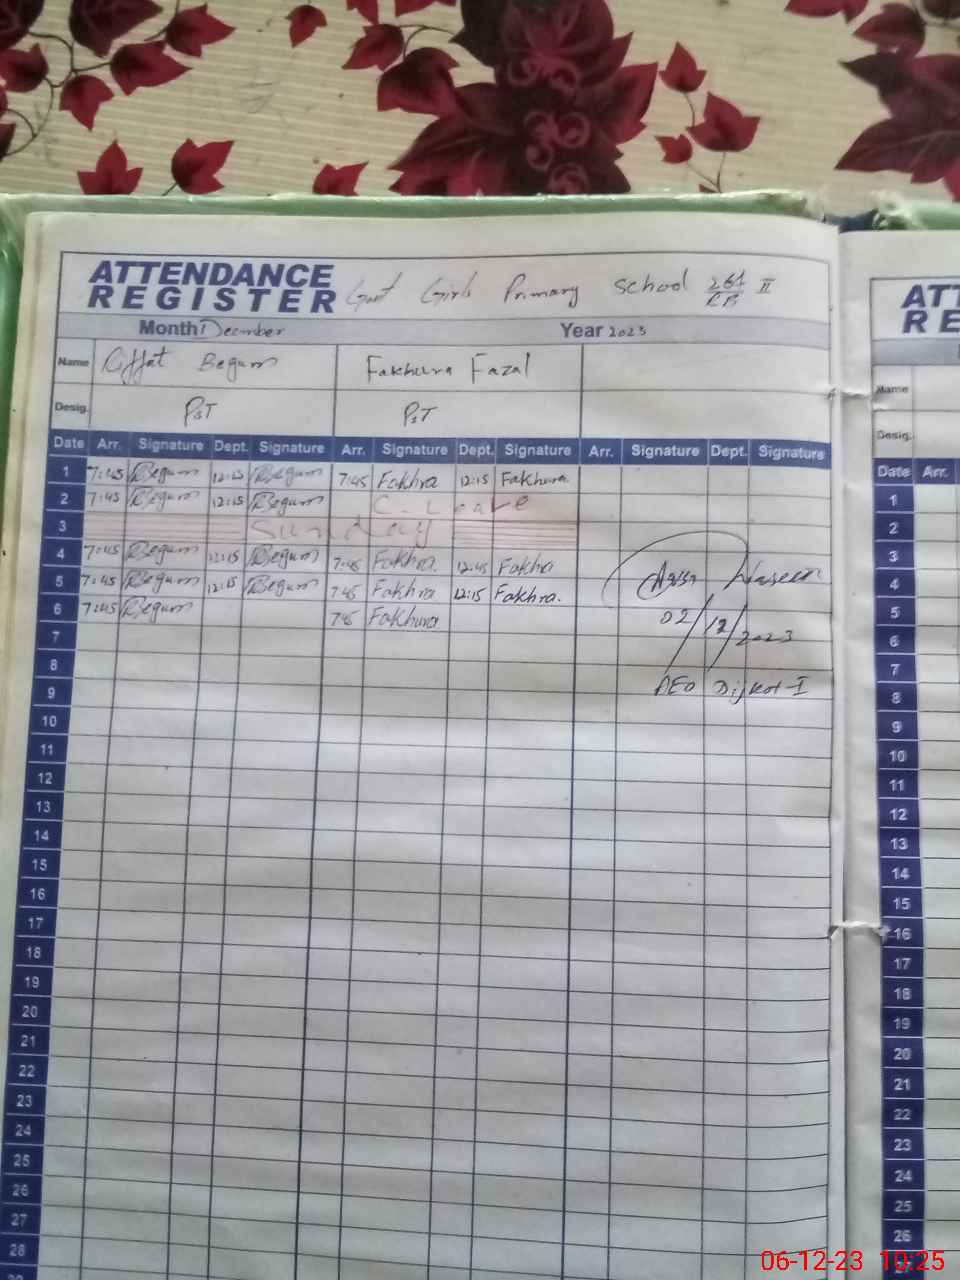 ATTENDANCE
REGISTER
Govt Girls Primary School 264/RB II
Month December Year 2023
Name Begum Fakhura Fazal
Desig. PST PST
Date Arr. Signature Dept. Signature Arr. Signature Dept. Signature Arr. Signature Dept. Signature
1 7:45 Begum 12:15 Begum 7:45 Fakhra 12:15 Fakhura
2 7:45 Begum 12:15 Begum C. Leave
3 Sunday
4 7:45 Begum 12:15 Begum 7:45 Fakhra. 12:45 Fakhra
5 7:45 Begum 12:15 Begum 7:45 Fakhra 12:15 Fakhra.
6 7:45 Begum 7:45 Fakhura
02/12/2023
7
8
AEO Dijkot-I
9
10
11
12
13
14
15
16
17
18
19
20
21
22
23
24
25
26
27
28
ATT
RE
Name
Desig.
Date Arr.
1
2
3
4
5
6
7
8
9
10
11
12
13
14
15
16
17
18
19
20
21
22
23
24
25
26
06-12-23 10:25